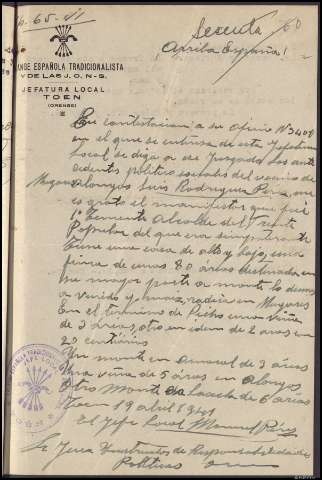 Sesenta 60
¡Arriba España!
FALANGE ESPAÑOLA TRADICIONALISTA
Y DE LAS J. O. N-S.
JEFATURA LOCAL
TOEN
(ORENSE)
En contestación a su oficio Nº 3409
en el que se interesa de esta Jefatura
Local se diga a ese Juzgado los ante
cedentes político sociales del vecino de
Mugares Alongos Luis Rodriguez Perez, me
es grato el manifestar que fué
1º Teniente Alcalde del Frente
Popular del que era simpatizante
Tiene una casa de alto y bajo, una
finca de unas 80 áreas destinada en
su mayor parte a monte lo demas
a viñedo y maiz, radica en Mugares
En el termino de una viña
de 3 áreas, otro en idem de 2 areas con
20 centiareas
Un monte en de 3 áreas
Una viña de 5 áreas en Alongos
Otro monte de 6 areas
Toen 19 abril 1941
El Jefe Local Manuel Pérez
Sr Juez Instructor de Responsabilidades
Politicas
JEFE LOCAL